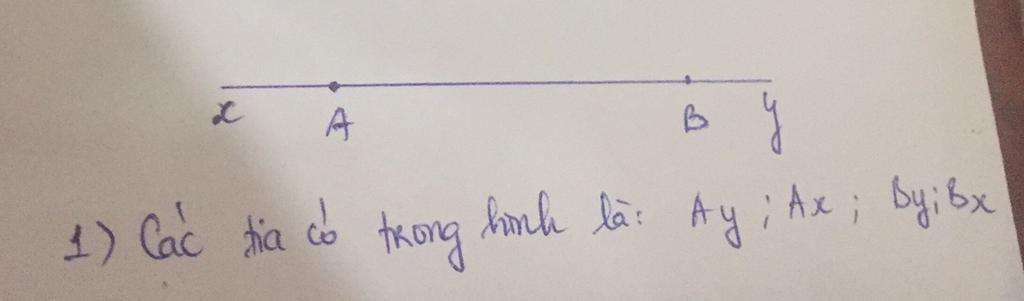 x A B y
1) Các tia có trong hình là: Ay ; Ax ; By ; Bx